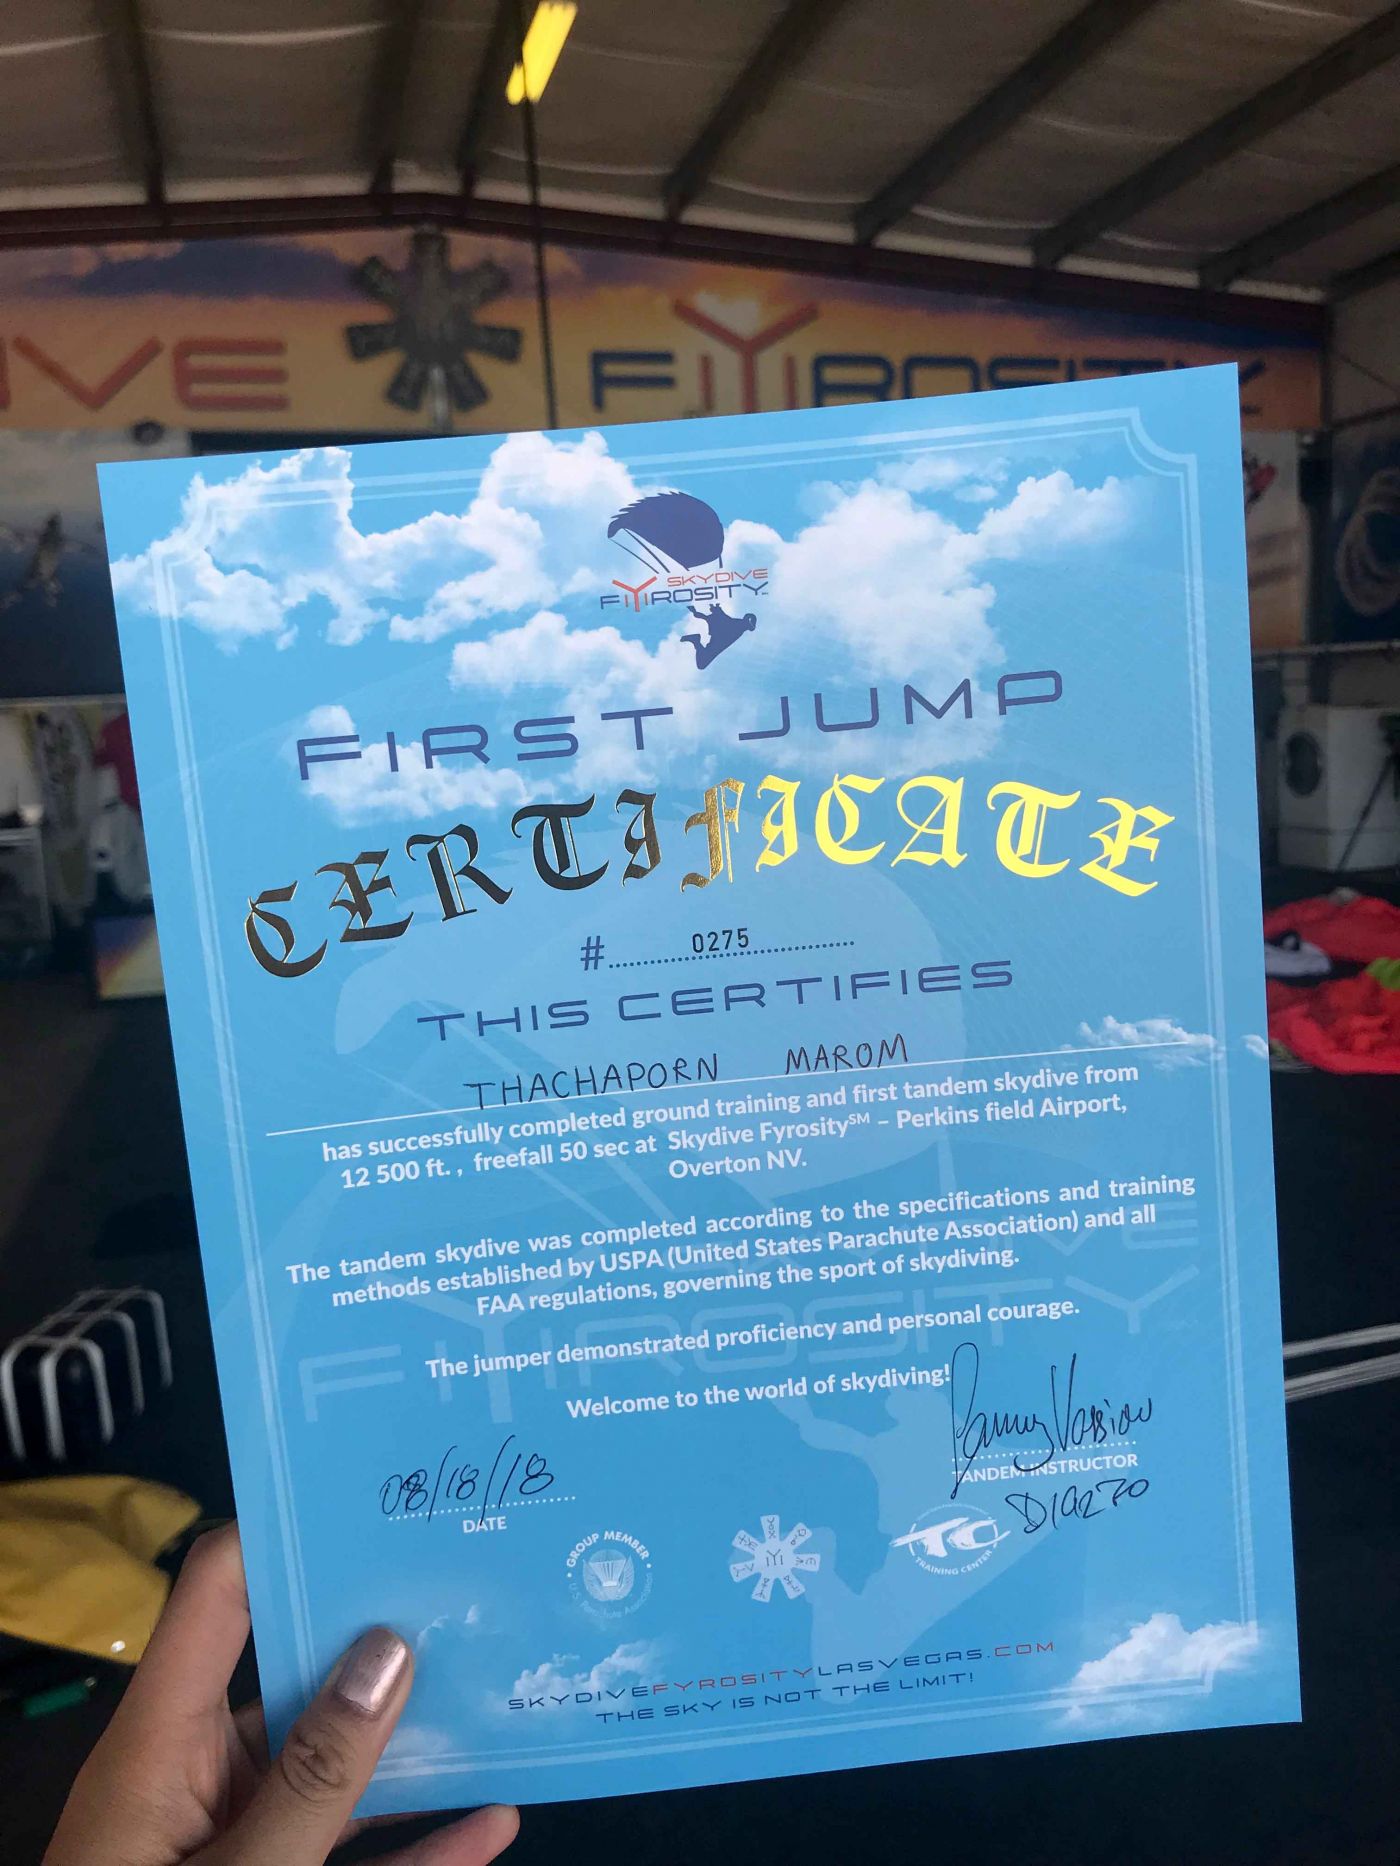 IVE FYROSITY
SKYDIVE
FYROSITY
FIRST JUMP
CERTIFICATE
# 0275
THIS CERTIFIES
THACHAPORN MAROM
has successfully completed ground training and first tandem skydive from
12 500 ft. , freefall 50 sec at Skydive Fyrosity℠ – Perkins field Airport,
Overton NV.
The tandem skydive was completed according to the specifications and training
methods established by USPA (United States Parachute Association) and all
FAA regulations, governing the sport of skydiving.
The jumper demonstrated proficiency and personal courage.
Welcome to the world of skydiving!
08/18/18
DATE
TANDEM INSTRUCTOR
D19270
GROUP MEMBER
U.S. Parachute Association
TRAINING CENTER
SKYDIVEFYROSITYLASVEGAS.COM
THE SKY IS NOT THE LIMIT!